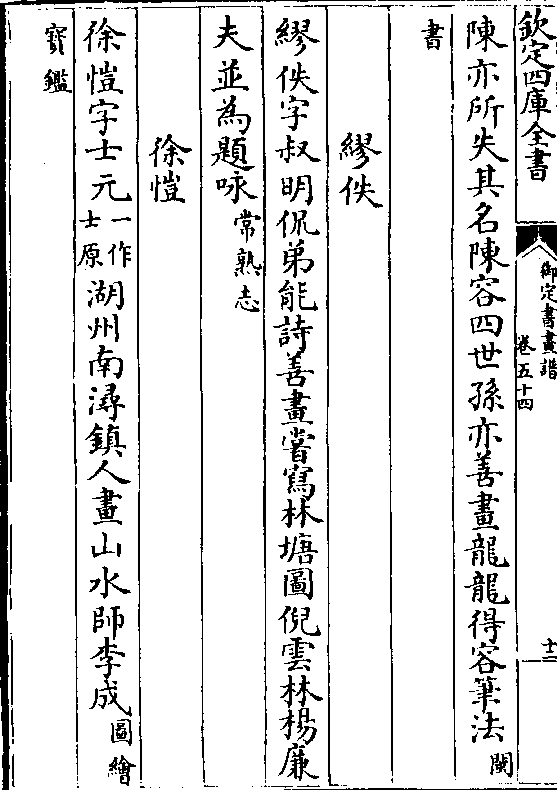 欽定四庫全書
御定書畫譜
卷五十四
十二
陳亦所失其名陳容四世孫亦善畫龍龍得容筆法閩
書
繆佚
繆佚字叔明侃弟能詩善畫嘗寫林塘圖倪雲林楊廉
夫並為題咏常熟志
徐愷
徐愷字士元一作士原湖州南潯鎮人畫山水師李成圖繪
寳鑑